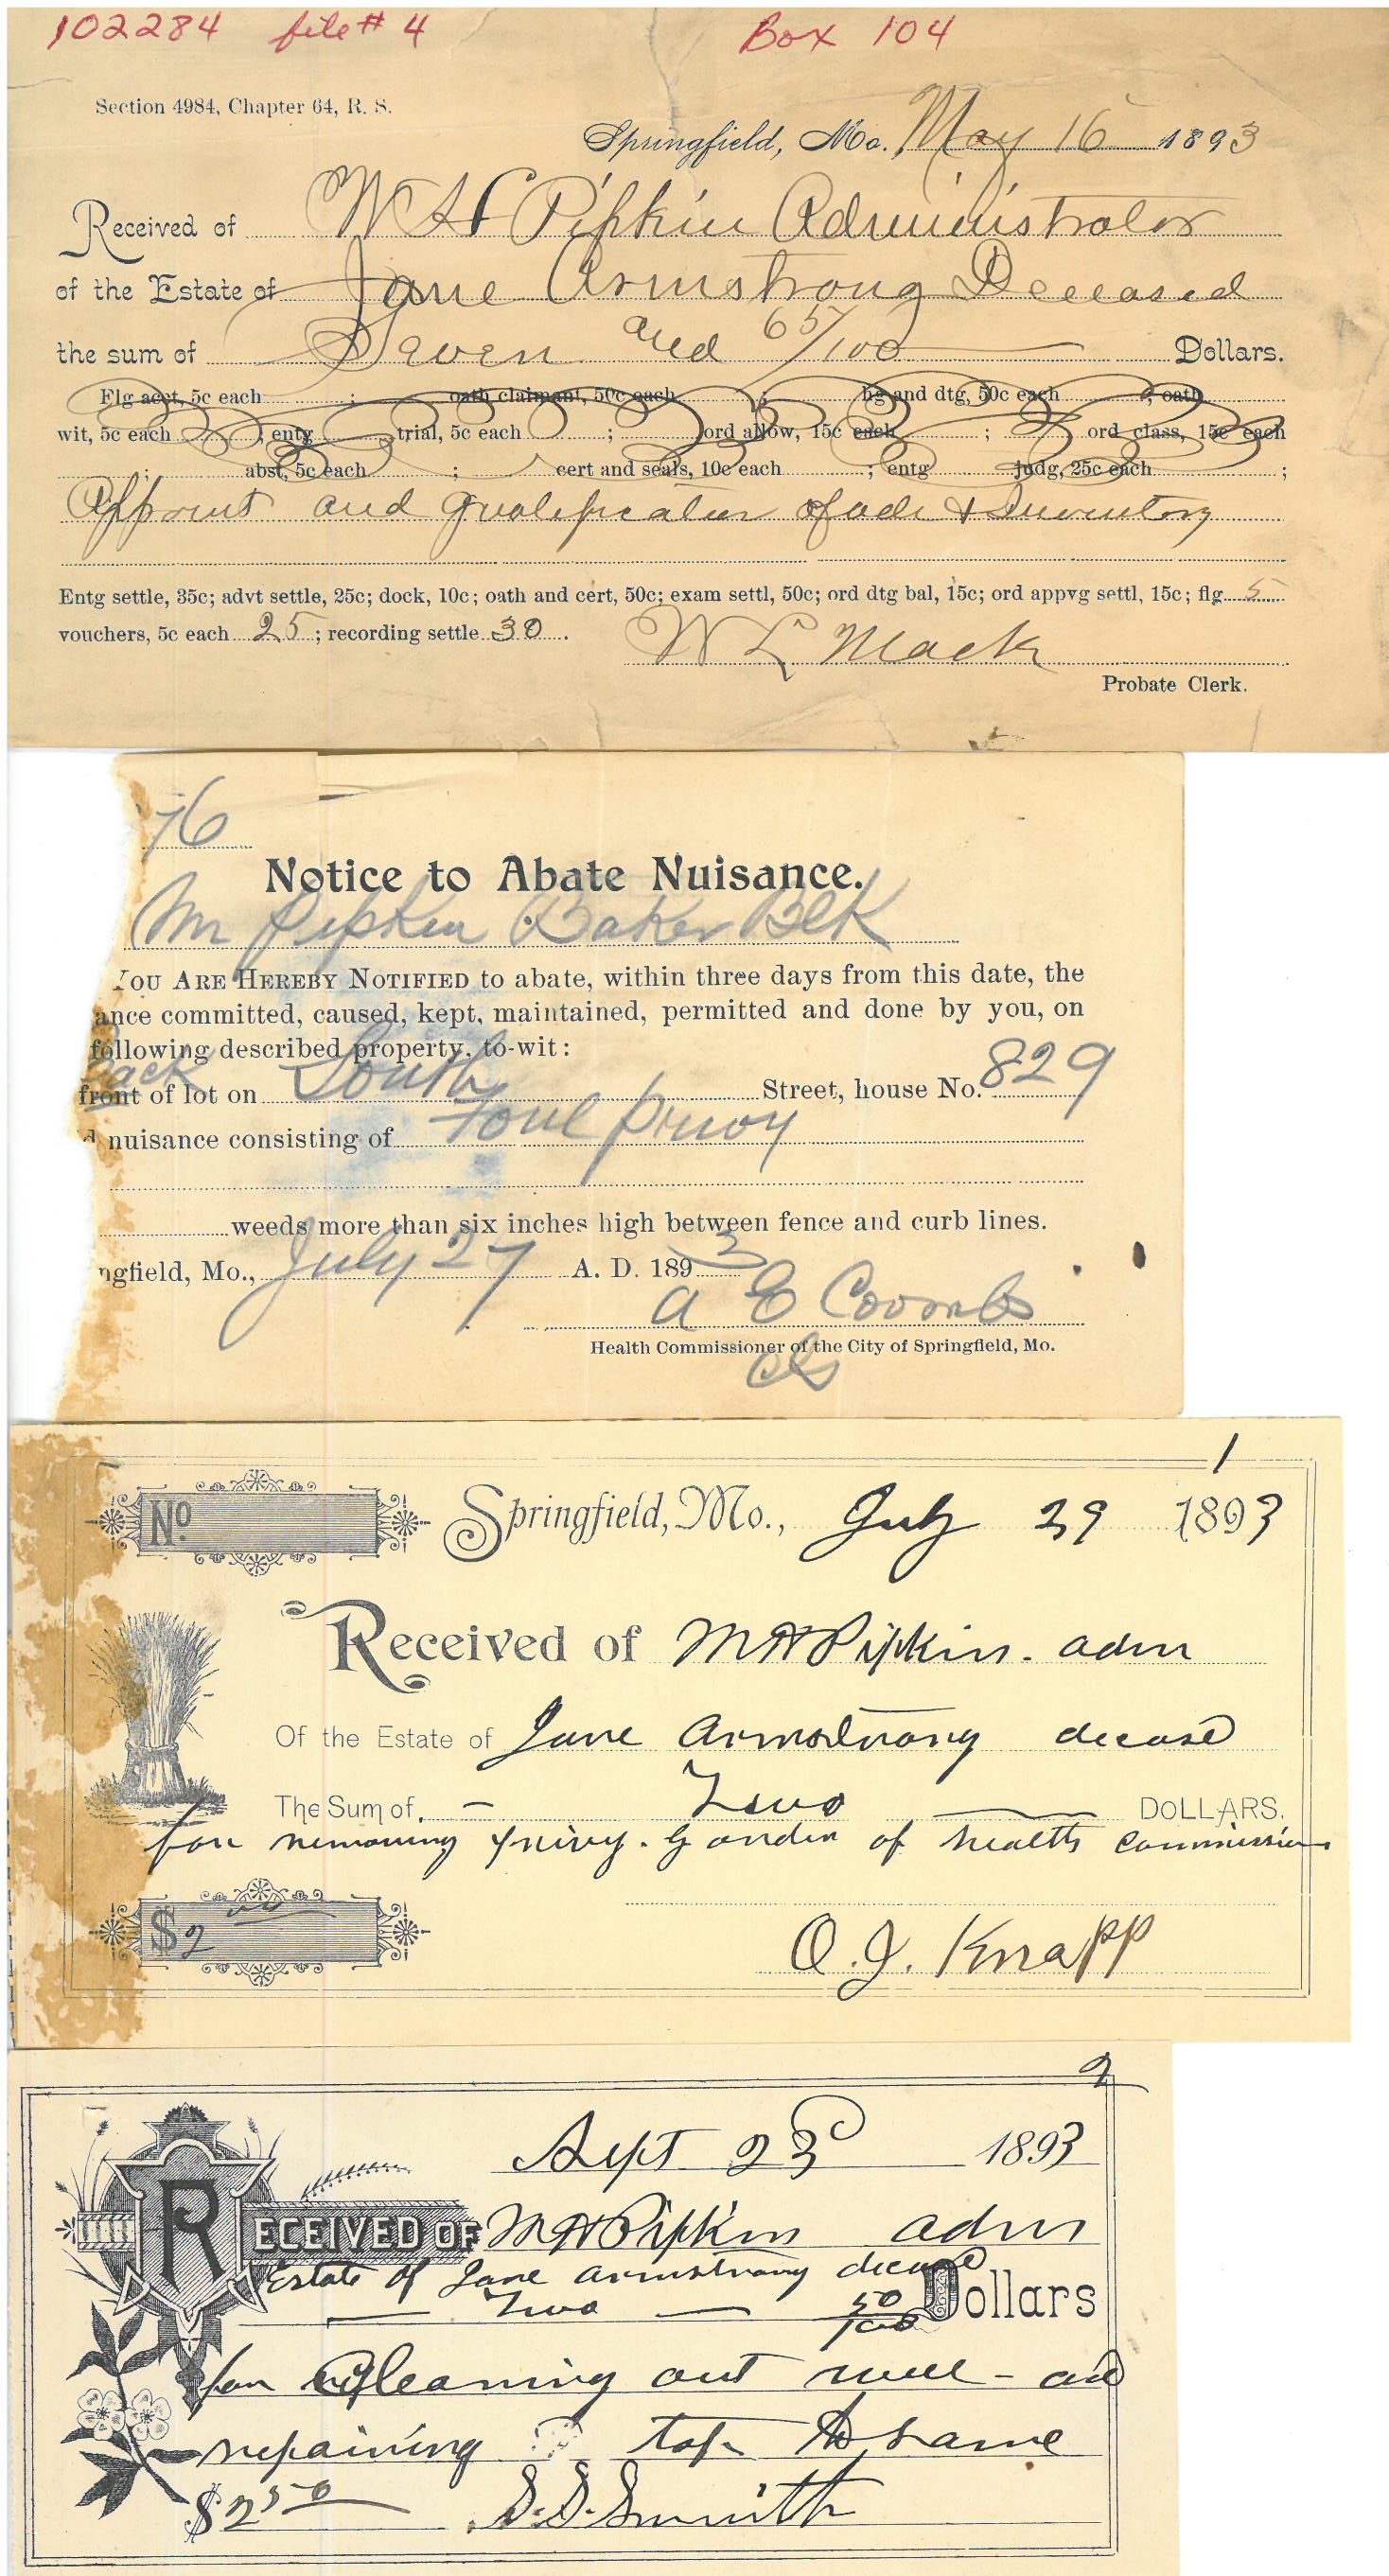 102284 file # 4 Box 104
Section 4984, Chapter 64, R. S.
Springfield, Mo. May 16 1893
Received of W H Pipkin Administrator
of the Estate of Jane Armstrong Deceased
the sum of Seven and 65/100 Dollars.
Flg acct, 5c each ; oath claimant, 50c each ; hg and dtg, 50c each ; oath
wit, 5c each ; entg trial, 5c each ; ord allow, 15c each ; ord class, 15c each
; abst, 5c each ; cert and seals, 10c each ; entg judg, 25c each ;
Appoint and qualification of adm & Inventory
Entg settle, 35c; advt settle, 25c; dock, 10c; oath and cert, 50c; exam settl, 50c; ord dtg bal, 15c; ord appvg settl, 15c; flg 5
vouchers, 5c each 25; recording settle 30.
W L Mack
Probate Clerk.
76
Notice to Abate Nuisance.
Mr Pipkin Baker Blk
YOU ARE HEREBY NOTIFIED to abate, within three days from this date, the
ance committed, caused, kept, maintained, permitted and done by you, on
following described property, to-wit:
Back
front of lot on South Street, house No. 829
d nuisance consisting of Foul privy
weeds more than six inches high between fence and curb lines.
ngfield, Mo., July 27 A. D. 1893
A E Coombs
Health Commissioner of the City of Springfield, Mo.
1
No Springfield, Mo., July 29 1893
Received of M H Pipkin. adm
Of the Estate of Jane Armstrong decease
The Sum of. – Two DOLLARS.
for removing privy. By order of health commissioner
$2 00
O. J. Knapp
2
Sept 23 1893
RECEIVED OF M H Pipkin adm
Estate of Jane Armstrong decease
Two 50/100 Dollars
for Cleaning out well - and
repairing top to same
$2 50 S. S. Smith